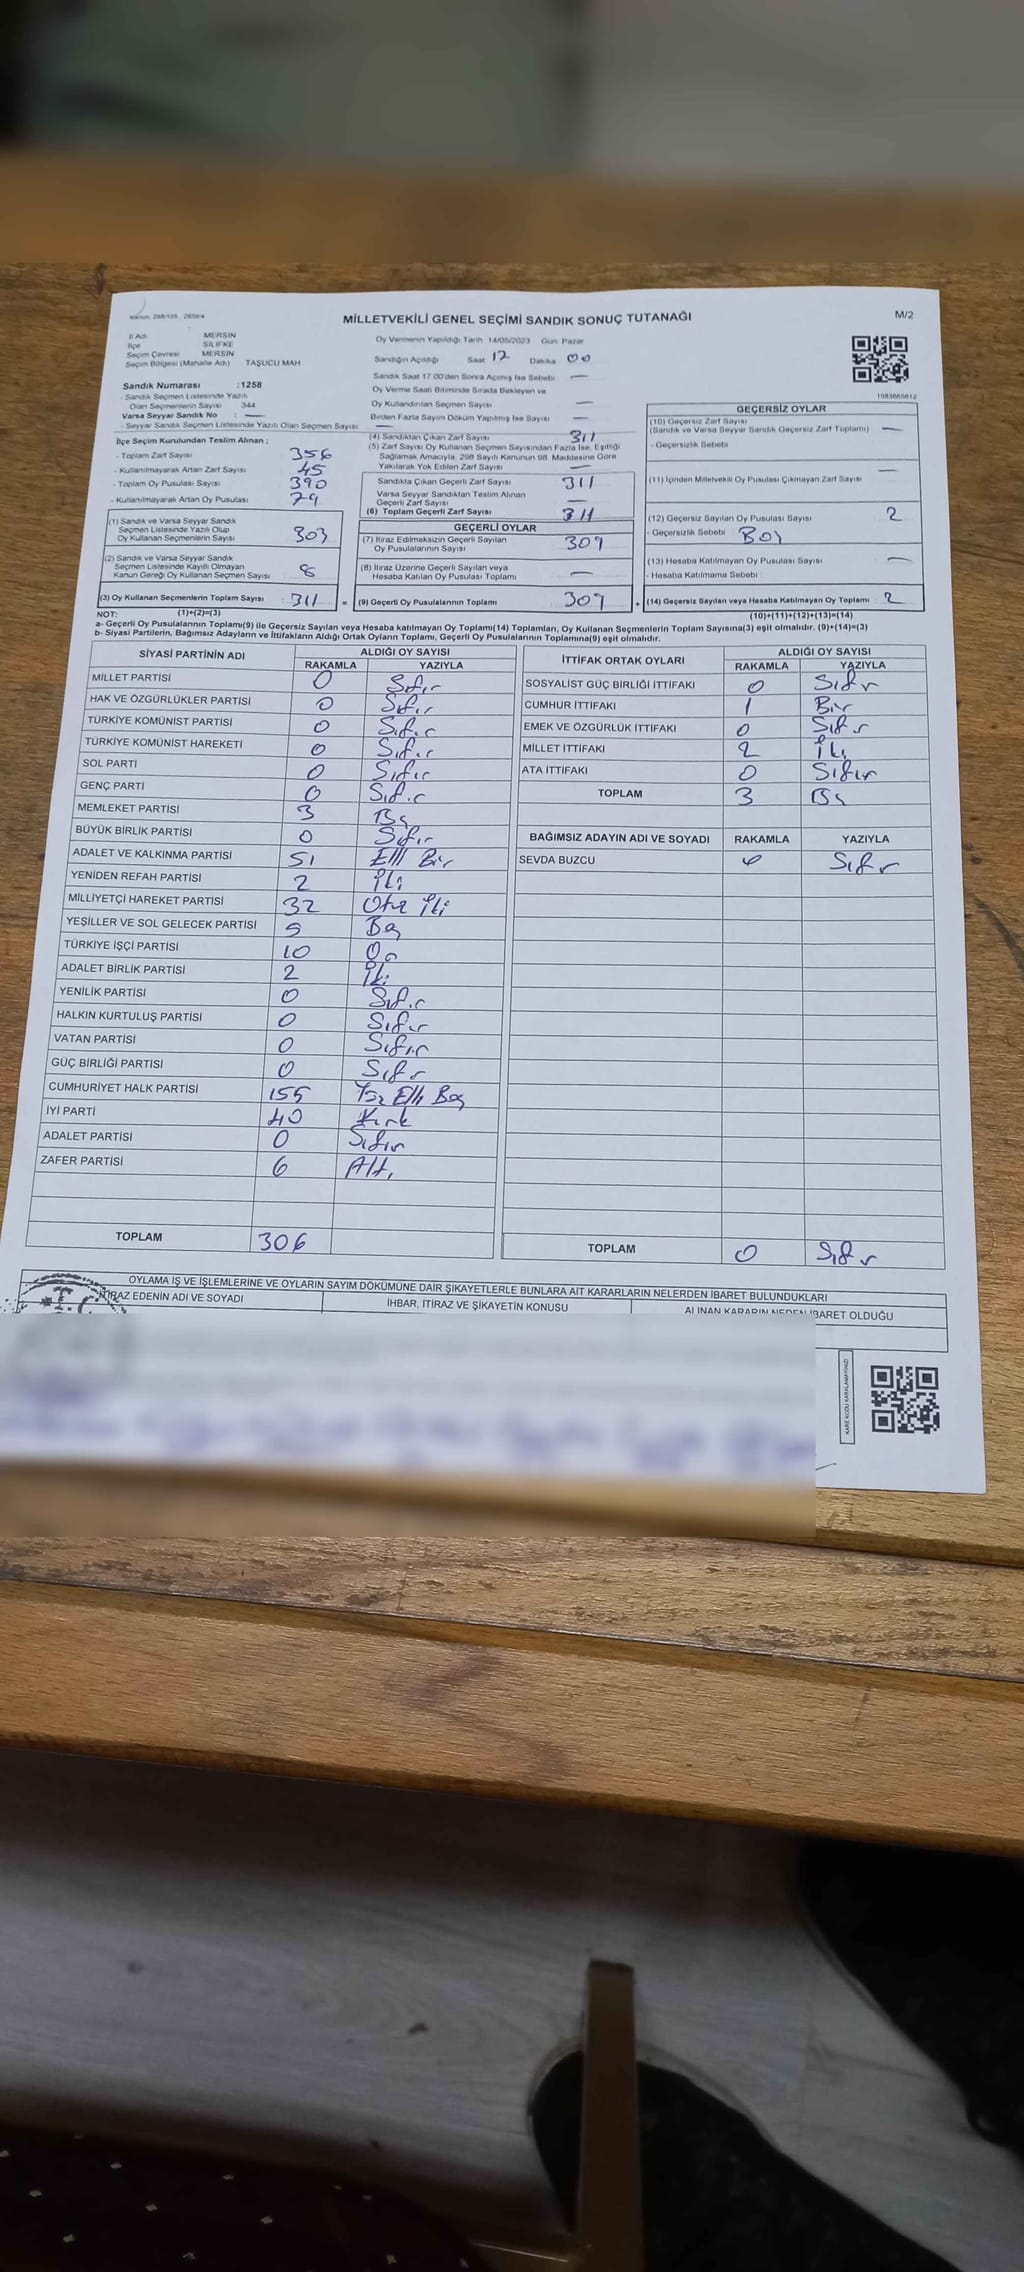 Kanun: 298/105 , 2839/4
MİLLETVEKİLİ GENEL SEÇİMİ SANDIK SONUÇ TUTANAĞI
M/2
İl Adı MERSİN
İlçe SİLİFKE
Seçim Çevresi MERSİN
Seçim Bölgesi (Mahalle Adı) TAŞUCU MAH
Sandık Numarası :1258
- Sandık Seçmen Listesinde Yazılı
Olan Seçmenlerin Sayısı 344
Varsa Seyyar Sandık No : —
- Seyyar Sandık Seçmen Listesinde Yazılı Olan Seçmen Sayısı —
İlçe Seçim Kurulundan Teslim Alınan ;
- Toplam Zarf Sayısı 356
- Kullanılmayarak Artan Zarf Sayısı 45
- Toplam Oy Pusulası Sayısı 390
- Kullanılmayarak Artan Oy Pusulası 79
(1) Sandık ve Varsa Seyyar Sandık
Seçmen Listesinde Yazılı Olup
Oy Kullanan Seçmenlerin Sayısı 303
(2) Sandık ve Varsa Seyyar Sandık
Seçmen Listesinde Kayıtlı Olmayan
Kanun Gereği Oy Kullanan Seçmen Sayısı 8
(3) Oy Kullanan Seçmenlerin Toplam Sayısı 311
(1)+(2)=(3)
Oy Vermenin Yapıldığı Tarih 14/05/2023 Gün Pazar
Sandığın Açıldığı Saat 12 Dakika 00
Sandık Saat 17.00'den Sonra Açılmış İse Sebebi —
Oy Verme Saati Bitiminde Sırada Bekleyen ve
Oy Kullandırılan Seçmen Sayısı —
Birden Fazla Sayım Döküm Yapılmış İse Sayısı —
(4) Sandıktan Çıkan Zarf Sayısı 311
(5) Zarf Sayısı Oy Kullanan Seçmen Sayısından Fazla İse, Eşitliği
Sağlamak Amacıyla, 298 Sayılı Kanunun 98. Maddesine Göre
Yakılarak Yok Edilen Zarf Sayısı —
Sandıkta Çıkan Geçerli Zarf Sayısı 311
Varsa Seyyar Sandıktan Teslim Alınan
Geçerli Zarf Sayısı —
(6) Toplam Geçerli Zarf Sayısı 311
GEÇERLİ OYLAR
(7) İtiraz Edilmeksizin Geçerli Sayılan
Oy Pusulalarının Sayısı 309
(8) İtiraz Üzerine Geçerli Sayılan veya
Hesaba Katılan Oy Pusulası Toplamı —
= (9) Geçerli Oy Pusulalarının Toplamı 309
1083665612
GEÇERSİZ OYLAR
(10) Geçersiz Zarf Sayısı
(Sandık ve Varsa Seyyar Sandık Geçersiz Zarf Toplamı) —
- Geçersizlik Sebebi
(11) İçinden Milletvekili Oy Pusulası Çıkmayan Zarf Sayısı —
(12) Geçersiz Sayılan Oy Pusulası Sayısı 2
- Geçersizlik Sebebi Boş
(13) Hesaba Katılmayan Oy Pusulası Sayısı —
- Hesaba Katılmama Sebebi
+ (14) Geçersiz Sayılan veya Hesaba Katılmayan Oy Toplamı 2
(10)+(11)+(12)+(13)=(14)
NOT:
a- Geçerli Oy Pusulalarının Toplamı(9) ile Geçersiz Sayılan veya Hesaba katılmayan Oy Toplamı(14) Toplamları, Oy Kullanan Seçmenlerin Toplam Sayısına(3) eşit olmalıdır. (9)+(14)=(3)
b- Siyasi Partilerin, Bağımsız Adayların ve İttifakların Aldığı Ortak Oyların Toplamı, Geçerli Oy Pusulalarının Toplamına(9) eşit olmalıdır.
SİYASİ PARTİNİN ADI ALDIĞI OY SAYISI
RAKAMLA YAZIYLA
MİLLET PARTİSİ 0 Sıfır
HAK VE ÖZGÜRLÜKLER PARTİSİ 0 Sıfır
TÜRKİYE KOMÜNİST PARTİSİ 0 Sıfır
TÜRKİYE KOMÜNİST HAREKETİ 0 Sıfır
SOL PARTİ 0 Sıfır
GENÇ PARTİ 0 Sıfır
MEMLEKET PARTİSİ 3
BÜYÜK BİRLİK PARTİSİ 0 Sıfır
ADALET VE KALKINMA PARTİSİ 51 Elli Bir
YENİDEN REFAH PARTİSİ 2 İki
MİLLİYETÇİ HAREKET PARTİSİ 32 Otuz İki
YEŞİLLER VE SOL GELECEK PARTİSİ 5 Beş
TÜRKİYE İŞÇİ PARTİSİ 10 On
ADALET BİRLİK PARTİSİ 2 İki
YENİLİK PARTİSİ 0 Sıfır
HALKIN KURTULUŞ PARTİSİ 0 Sıfır
VATAN PARTİSİ 0 Sıfır
GÜÇ BİRLİĞİ PARTİSİ 0 Sıfır
CUMHURİYET HALK PARTİSİ 155 Yüz Elli Beş
İYİ PARTİ 40 Kırk
ADALET PARTİSİ 0 Sıfır
ZAFER PARTİSİ 6 Altı
TOPLAM 306
İTTİFAK ORTAK OYLARI ALDIĞI OY SAYISI
RAKAMLA YAZIYLA
SOSYALİST GÜÇ BİRLİĞİ İTTİFAKI 0 Sıfır
CUMHUR İTTİFAKI 1 Bir
EMEK VE ÖZGÜRLÜK İTTİFAKI 0 Sıfır
MİLLET İTTİFAKI 2 İki
ATA İTTİFAKI 0 Sıfır
TOPLAM 3
BAĞIMSIZ ADAYIN ADI VE SOYADI RAKAMLA YAZIYLA
SEVDA BUZCU Sıfır
TOPLAM 0 Sıfır
OYLAMA İŞ VE İŞLEMLERİNE VE OYLARIN SAYIM DÖKÜMÜNE DAİR ŞİKAYETLERLE BUNLARA AİT KARARLARIN NELERDEN İBARET BULUNDUKLARI
İTİRAZ EDENİN ADI VE SOYADI İHBAR, İTİRAZ VE ŞİKAYETİN KONUSU ALINAN KARARIN NEDEN İBARET OLDUĞU
T.C.
KARE KODU KARALAMAYINIZ!